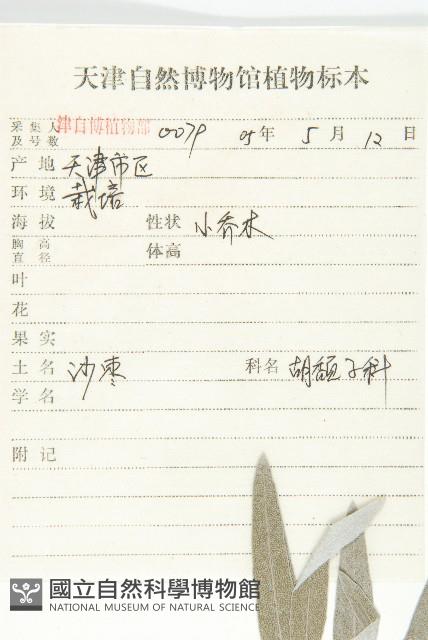 天津自然博物馆植物标本
采集人及号数 津自博植物部 0079 05年 5月 12日
产地 天津市区
环境 栽培
海拔 性状 小乔木
胸高直径 体高
叶
花
果实
土名 沙枣 科名 胡颓子科
学名
附记
國立自然科學博物館
NATIONAL MUSEUM OF NATURAL SCIENCE